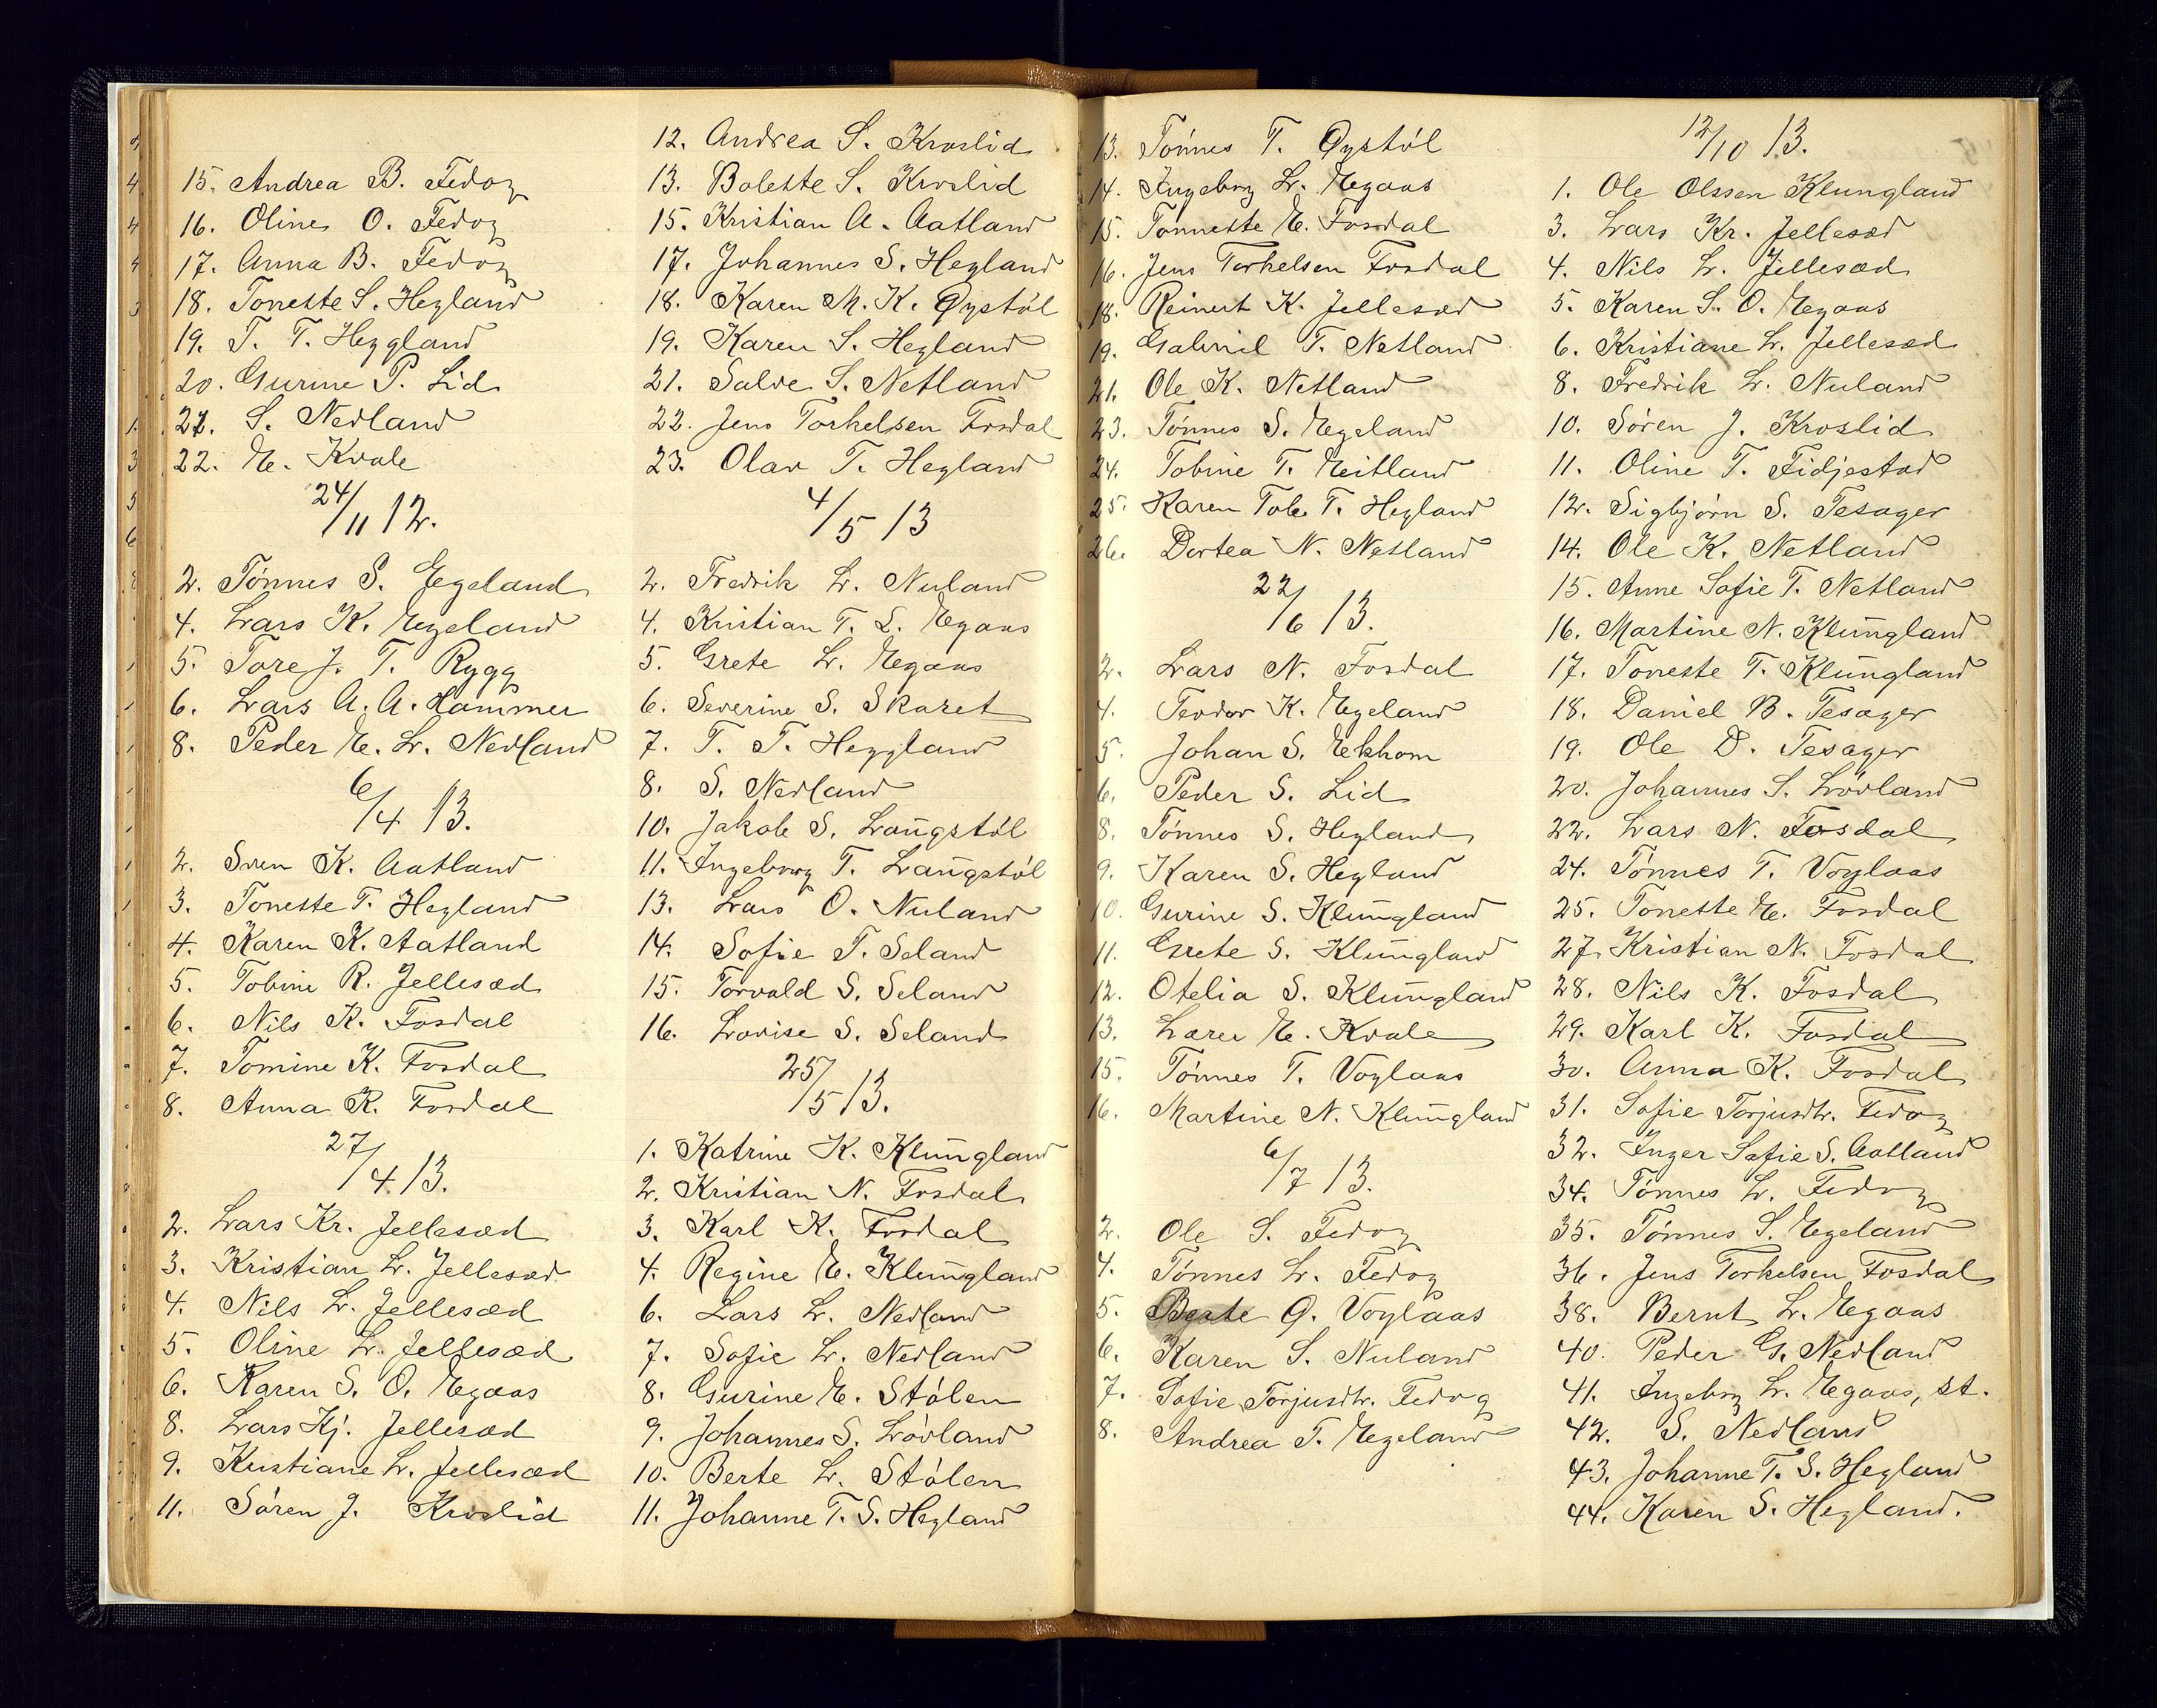 15. Andrea B. Fedog
16. Oline O. Fedog
17. Anna B. Fedog
18. Tonette S. Hegland
19. T. T. Heggland
20. Gurine P. Lid
21. S. Nedland
22. E. Kvale
24/11 12.
2. Tónnes S. Egeland
4. Lars K. Egeland
5. Tore J. T. Rygg
6. Lars A. A. Hammer
8. Peder E. L. Nedland
6/4 13.
2. Sven K. Aatland
3. Tonette T. Hegland
4. Karen K. Aatland
5. Tobine K. Jellesæd
6. Nils K. Fosdal
7. Tomine K. Fosdal
8. Anna K. Fosdal
27/4 13.
2. Lars Kr. Jellesæd
3. Kristian L. Jellesæd
4. Nils L. Jellesæd
5. Oline L. Jellesæd
6. Karen S. O. Egaas
8. Lars Kj. Jellesæd
9. Kristiane L. Jellesæd
11. Sóren J. Kroslid
12. Andrea S. Kroslid
13. Bolette S. Kroslid
15. Kristian A. Aatland
17. Johannes S. Hegland
18. Karen M. K. Øystól
19. Karen S. Hegland
21. Salve S. Netland
22. Jens Torkelsen Fosdal
23. Olav T. Hegland
4/5 13
2. Fredrik L. Nuland
4. Kristian T. L. Egaas
5. Grete L. Egaas
6. Severine S. Skaret
7. T. T. Heggland
8. S. Nedland
10. Jakob S. Langstól
11. Ingeborg T. Langstól
13. Lars O. Nuland
14. Sofie T. Seland
15. Torvald S. Seland
16. Lovise S. Seland
25/5 13.
1. Katrine K. Klungland
2. Kristian N. Fosdal
3. Karl K. Fosdal
4. Regine E. Klungland
6. Lars L. Nedland
7. Sofie L. Nedland
8. Gurine E. Stólen
9. Johannes S. Lóvland
10. Berte L. Stólen
11. Johanne T. S. Hegland
13. Tónnes T. Øystól
14. Ingeborg L. Egaas
15. Tonnette E. Fosdal
16. Jens Torkelsen Fosdal
18. Reinert K. Jellesæd
19. Gabriel T. Netland
21. Ole K. Netland
23. Tónnes S. Egeland
24. Tobine T. Eitland
25. Karen Tob. T. Hegland
26. Dortea N. Netland
22/6 13.
2. Lars N. Fosdal
4. Teodor K. Egeland
5. Johan S. Ekhom
6. Peder S. Lid
8. Tónnes S. Hegland
9. Karen S. Hegland
10. Gurine S. Klungland
11. Grete S. Klungland
12. Otelia S. Klungland
13. Lærer E. Kvale
15. Tónnes T. Voglaas
16. Martine N. Klungland
6/7 13.
2. Ole S. Fedog
4. Tónnes L. Fedog
5. Berte G. Voglaas
6. Karen S. Nuland
7. Sofie Torjusdtr. Fedog
8. Andrea T. Egeland
12/10 13.
1. Ole Olssen Klungland
3. Lars Kr. Jellesæd
4. Nils L. Jellesæd
5. Karen S. O. Egaas
6. Kristiane L. Jellesæd
8. Fredrik L. Nuland
10. Sóren J. Kroslid
11. Oline T. Fidjestad
12. Sigbjórn S. Tesager
14. Ole K. Netland
15. Anne Sofie T. Netland
16. Martine N. Klungland
17. Tonette T. Klungland
18. Daniel B. Tesager
19. Ole D. Tesager
20. Johannes S. Lóvland
22. Lars N. Fosdal
24. Tónnes T. Voglaas
25. Tonette E. Fosdal
27. Kristian N. Fosdal
28. Nils K. Fosdal
29. Karl K. Fosdal
30. Anna K. Fosdal
31. Sofie Torjusdtr. Fedog
32. Inger Sofie S. Aatland
34. Tónnes L. Fedog
35. Tónnes S. Egeland
36. Jens Torkelsen Fosdal
38. Bernt L. Egaas
40. Peder G. Nedland
41. Ingeborg L. Egaas, st.
42. S. Nedland
43. Johanne T. S. Hegland
44. Karen S. Hegland.